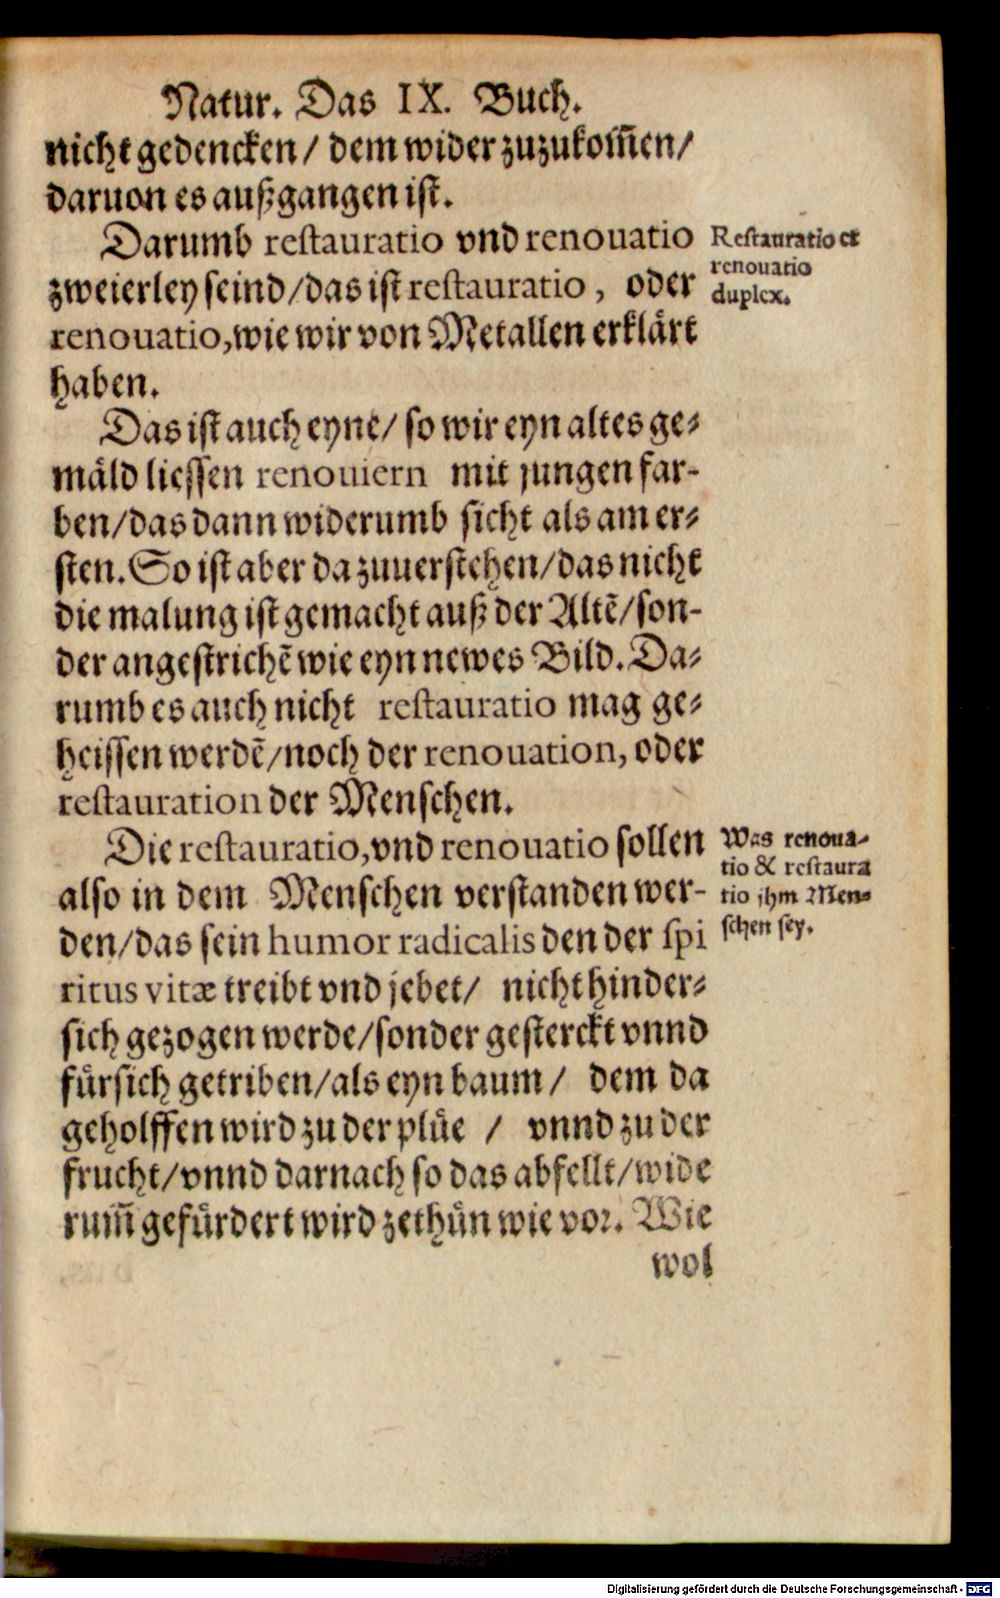 Natur. Das IX. Buch.
nicht gedencken/ dem wider zuzukom̃en/
daruon es außgangen ist.
Darumb restauratio vnd renouatio
zweierley seind/das ist restauratio, oder
renouatio,wie wir von Metallen erklårt
haben.
Restauratio et
renouatio
duplex.
Das ist auch eyne/ so wir eyn altes ge-
måld liessen renouiern mit jungen far-
ben/das dann widerumb sicht als am er-
sten. So ist aber da zuuerstehen/das nicht
die malung ist gemacht auß der Altẽ/son-
der angestrichẽ wie eyn newes Bild. Da-
rumb es auch nicht restauratio mag ge-
heissen werdẽ/noch der renouation, oder
restauration der Menschen.
Die restauratio,vnd renouatio sollen
also in dem Menschen verstanden wer-
den/das sein humor radicalis den der spi
ritus vitæ treibt vnd jebet/ nicht hinder-
sich gezogen werde/sonder gesterckt vnnd
fůrsich getriben/als eyn baum/ dem da
geholffen wird zu der plůe / vnnd zu der
frucht/vnnd darnach so das abfellt/wide
rum̃ gefůrdert wird zethůn wie vor. Wie
wol
Was renoua-
tio & restaura
tio jhm Men-
schen sey.
Digitalisierung gefördert durch die Deutsche Forschungsgemeinschaft - DFG